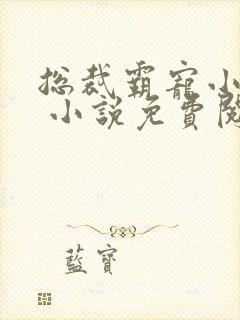 總裁霸寵小
小說免費閱
藍寶